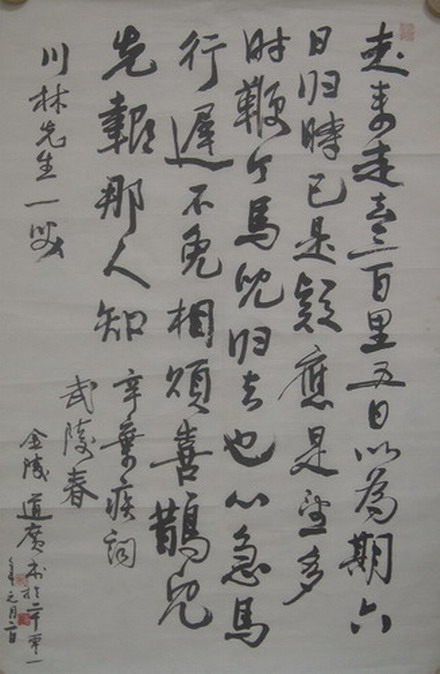 走来走去三百里五日以為期六
日归時已是疑應是望多
时鞭个馬兒归去也心急馬
行遲不免相煩喜鵲兒
先報那人知 辛棄疾詞
武陵春
川林先生一笑
金陵道廣
年元月一日